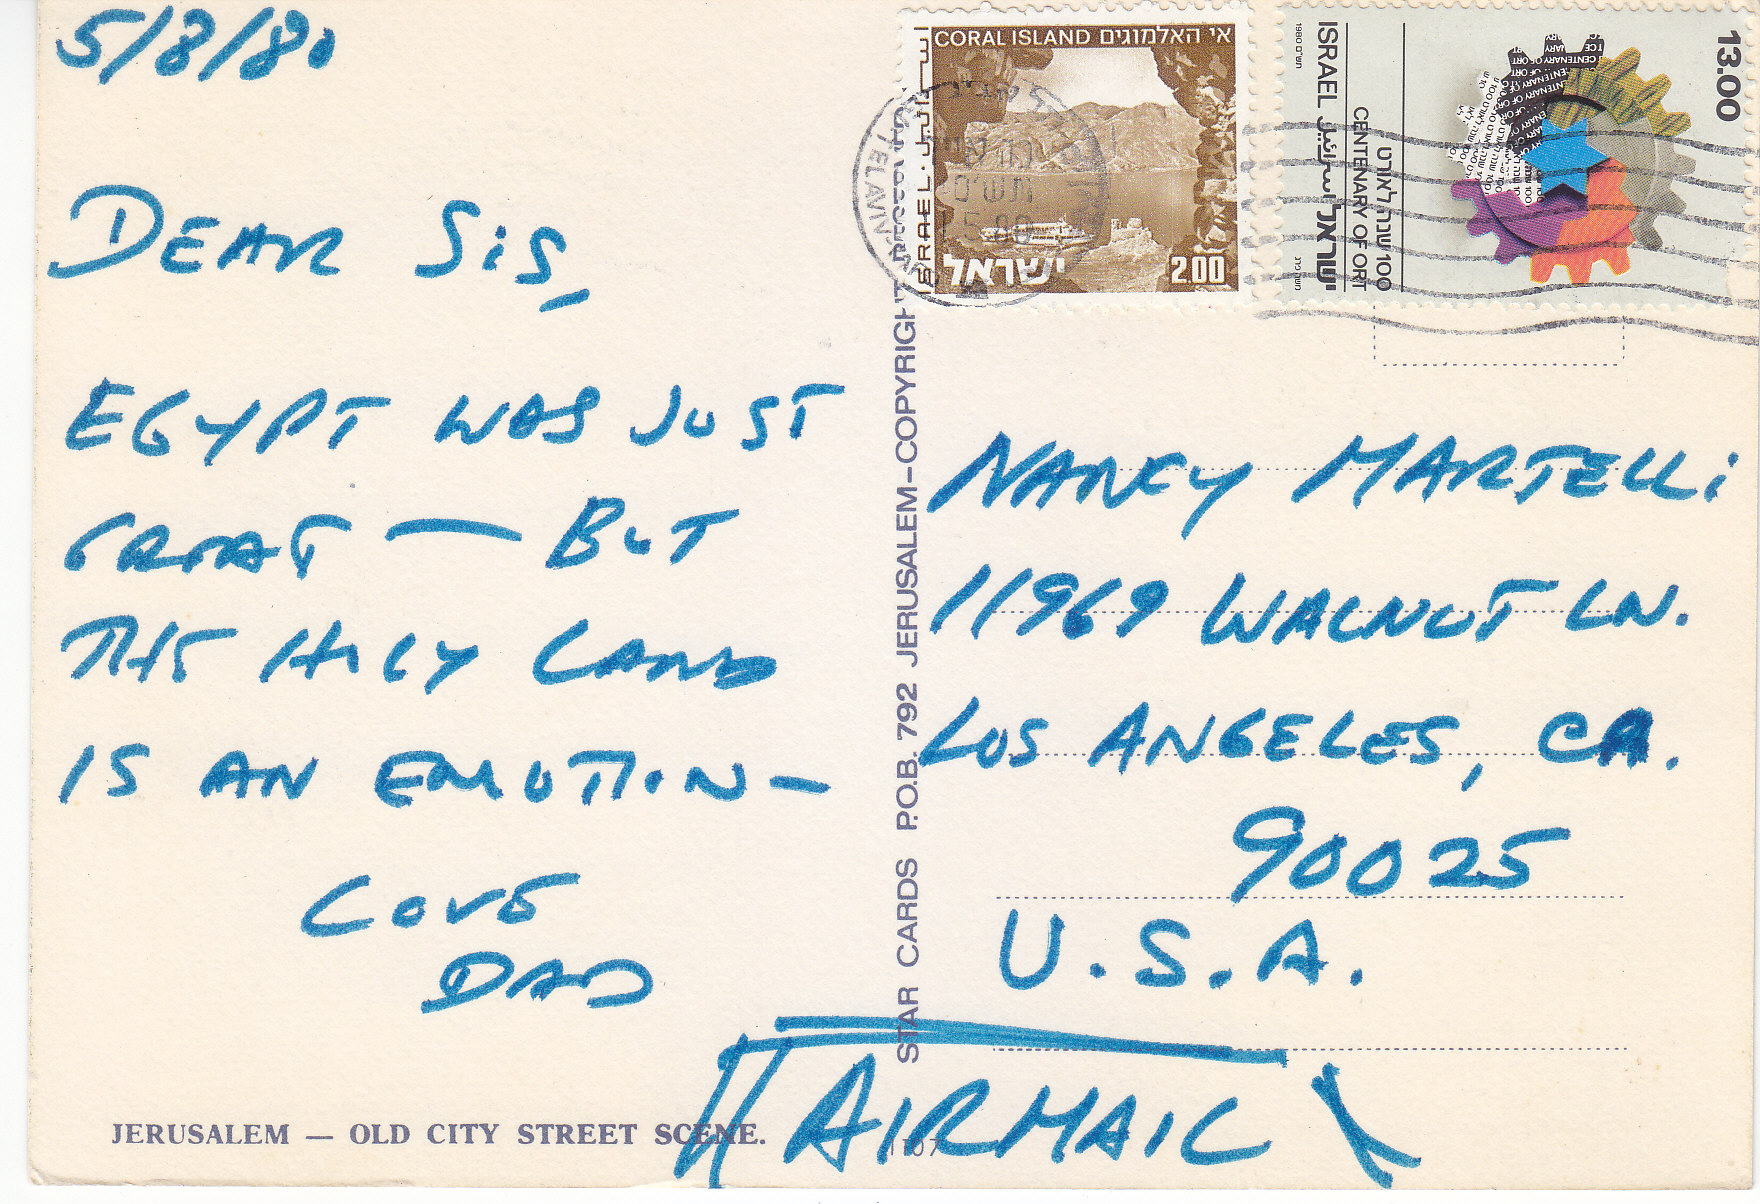 5/8/80
DEAR SIS,
EGYPT WAS JUST
GREAT — BUT
THE HOLY LAND
IS AN EMOTION —
LOVE
DAD
JERUSALEM — OLD CITY STREET SCENE.
STAR CARDS P.O.B. 792 JERUSALEM—COPYRIGHT
CORAL ISLAND אי האלמוגים
ISRAEL
ישראל
2.00
TELAVIV
תש"ם
5.80
13.00
ISRAEL اسرائيل ישראל
1980 תש"ם
CENTENARY OF ORT
100 שנה לאורט
NANCY MARTELLI
11969 WALNUT LN.
LOS ANGELES, CA.
90025
U.S.A.
AIRMAIL